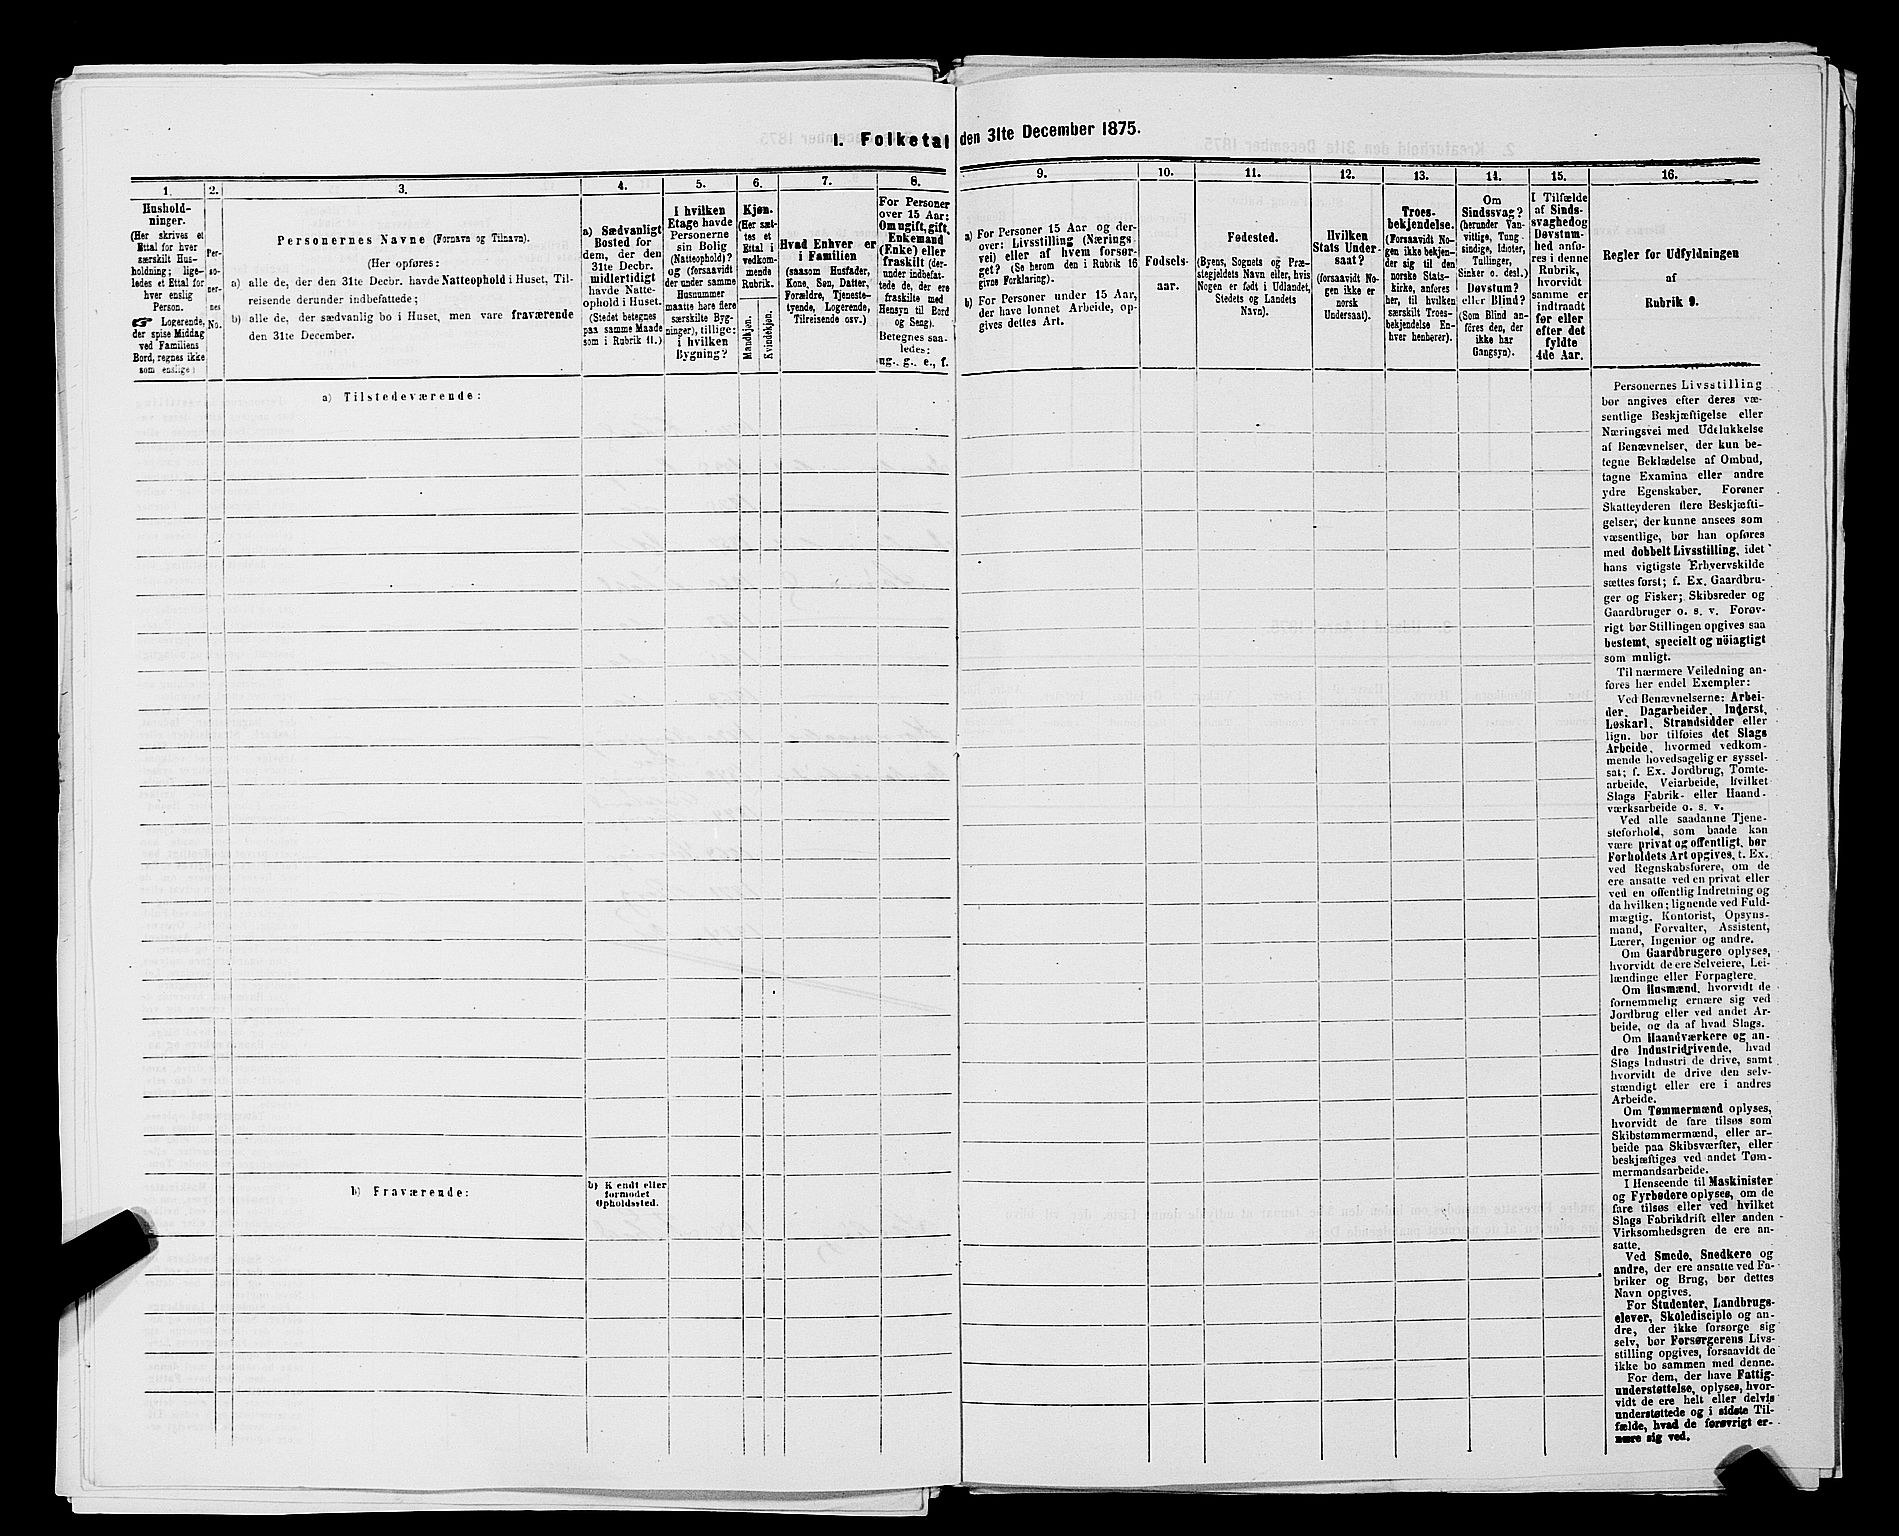 1. Folketal den 31te December 1875.
1.
2.
3.
4.
5.
6.
7.
8.
9.
10.
11.
12.
13.
14.
15.
16.
Hushold-
ninger.
(Her skrives et
Ettal for hver
særskilt Hus-
holdning; lige-
ledes et Ettal for
hver enslig
Person.
☞ Logerende,
der spise Middag
ved Familiens
Bord, regnes ikke
som enslige)
Per-
so-
ner-
nes
No.
Personernes Navne (Fornavn og Tilnavn).
(Her opføres:
a) alle de, der den 31te Decbr. havde Natteophold i Huset, Til-
reisende derunder indbefattede;
b) alle de, der sædvanlig bo i Huset, men vare fraværende
den 31te December.
a) Sædvanligt
Bosted for
dem, der den
31te Decbr.
midlertidigt
havde Natte-
ophold i Huset.
(Stedet betegnes
paa samme Maade
som i Rubrik 11.)
I hvilken
Etage havde
Personerne
sin Bolig
(Natteophold)?
og (forsaavidt
der under samme
Husnummer
maatte høre flere
særskilte Byg-
ninger), tillige:
i hvilken
Bygning?
Kjøn.
(Her sæt-
tes et
Ettal i
vedkom-
mende
Rubrik.
Mandkjøn.
Kvindekjøn.
Hvad Enhver er
i Familien
(saasom Husfader,
Kone, Søn, Datter,
Forældre, Tjeneste-
tyende, Logerende,
Tilreisende osv.)
For Personer
over 15 Aar:
Om ugift, gift,
Enkemand
(Enke) eller
fraskilt (der-
under indbefat-
tede de, der ere
fraskilte med
Hensyn til Bord
og Seng).
Betegnes saa-
ledes:
ug., g., e., f.
a) For Personer 15 Aar og der-
over: Livsstilling (Nærings-
vei) eller af hvem forsør-
get? (Se herom den i Rubrik 16
givne Forklaring).
b) For Personer under 15 Aar,
der have lønnet Arbeide, op-
gives dettes Art.
Fødsels-
aar.
Fødested.
(Byens, Sognets og Præ-
stegjeldets Navn eller, hvis
Nogen er født i Udlandet,
Stedets og Landets
Navn).
Hvilken
Stats Under-
saat?
(forsaavidt No-
gen ikke er
norsk
Undersaat).
Troes-
bekjendelse.
(Forsaavidt No-
gen ikke bekjen-
der sig til den
norske Stats-
kirke, anføres
her, til hvilken
særskilt Troes-
bekjendelse En-
hver henhører).
Om
Sindssvag?
(herunder Van-
vittige, Tung-
sindige, Idioter,
Tullinger,
Sinker o. desl.)
Døvstum?
eller Blind?
(Som Blind an-
føres den, der
ikke har
Gangsyn).
I Tilfælde
af Sinds-
svaghed og
Døvstum-
hed anfø-
res i denne
Rubrik,
hvorvidt
samme er
indtraadt
før eller
efter det
fyldte
4de Aar.
Regler for Udfyldningen
af
Rubrik 9.
a) Tilstedeværende:
b) Fraværende:
b) Kendt eller
formodet
Opholdssted.
Personernes Livsstilling
bør angives efter deres væ-
sentlige Beskjæftigelse eller
Næringsvei med Udelukkelse
af Benævnelser, der kun be-
tegne Beklædelse af Ombud,
tagne Examina eller andre
ydre Egenskaber. Forener
Skatteyderen flere Beskjæfti-
gelser, der kunne ansees som
væsentlige, bør han opføres
med dobbelt Livsstilling, idet
hans vigtigste Erhvervskilde
sættes først; f. Ex. Gaardbru-
ger og Fisker; Skibsreder og
Gaardbruger o. s. v. Forøv-
rigt bør Stillingen opgives saa
bestemt, specielt og nöiagtigt
som muligt.
Til nærmere Veiledning an-
føres her endel Exempler:
Ved Benævnelserne: Arbei-
der, Dagarbeider, Inderst,
Løskarl, Strandsidder eller
lign. bør tilføies det Slags
Arbeide, hvormed vedkom-
mende hovedsagelig er syssel-
sat; f. Ex. Jordbrug, Tomte-
arbeide, Veiarbeide, hvilket
Slags Fabrik- eller Haand-
værksarbeide o. s. v.
Ved alle saadanne Tjene-
steforhold, som baade kan
være privat og offentligt, bør
Forholdets Art opgives, t. Ex.
ved Regnskabsførere, om de
ere ansatte ved en privat eller
ved en offentlig Indretning og
da hvilken; lignende ved Fuld-
mægtig, Kontorist, Opsyns-
mand, Forvalter, Assistent,
Lærer, Ingeniør og andre.
Om Gaardbrugere oplyses,
hvorvidt de ere Selveiere, Lei-
lændinge eller Forpagtere.
Om Husmænd, hvorvidt de
fornemmelig ernære sig ved
Jordbrug eller ved andet Ar-
beide, og da af hvad Slags.
Om Haandværkere og an-
dre Industridrivende, hvad
Slags Industri de drive, samt
hvorvidt de drive den selv-
stændigt eller ere i andres
Arbeide.
Om Tømmermænd oplyses,
hvorvidt de fare tilsøs som
Skibstømmermænd, eller ar-
beide paa Skibsværfter, eller
beskjæftiges ved andet Tøm-
mermandsarbeide.
I Henseende til Maskinister
og Fyrbødere oplyses, om de
fare tilsøs eller ved hvilket
Slags Fabrikdrift eller anden
Virksomhedsgren de ere an-
satte.
Ved Smede, Snedkere og
andre, der ere ansatte ved Fa-
briker og Brug, bør dettes
Navn opgives.
For Studenter, Landbrugs-
elever, Skoledisciple og an-
dre, der ikke forsørge sig
selv, bør Forsørgerens Livs-
stilling opgives, forsaavidt de
ikke bo sammen med denne.
For dem, der have Fattig-
understøttelse, oplyses, hvor-
vidt de ere helt eller delvis
understøttede og i sidste Til-
fælde, hvad de forøvrigt er-
nære sig ved.